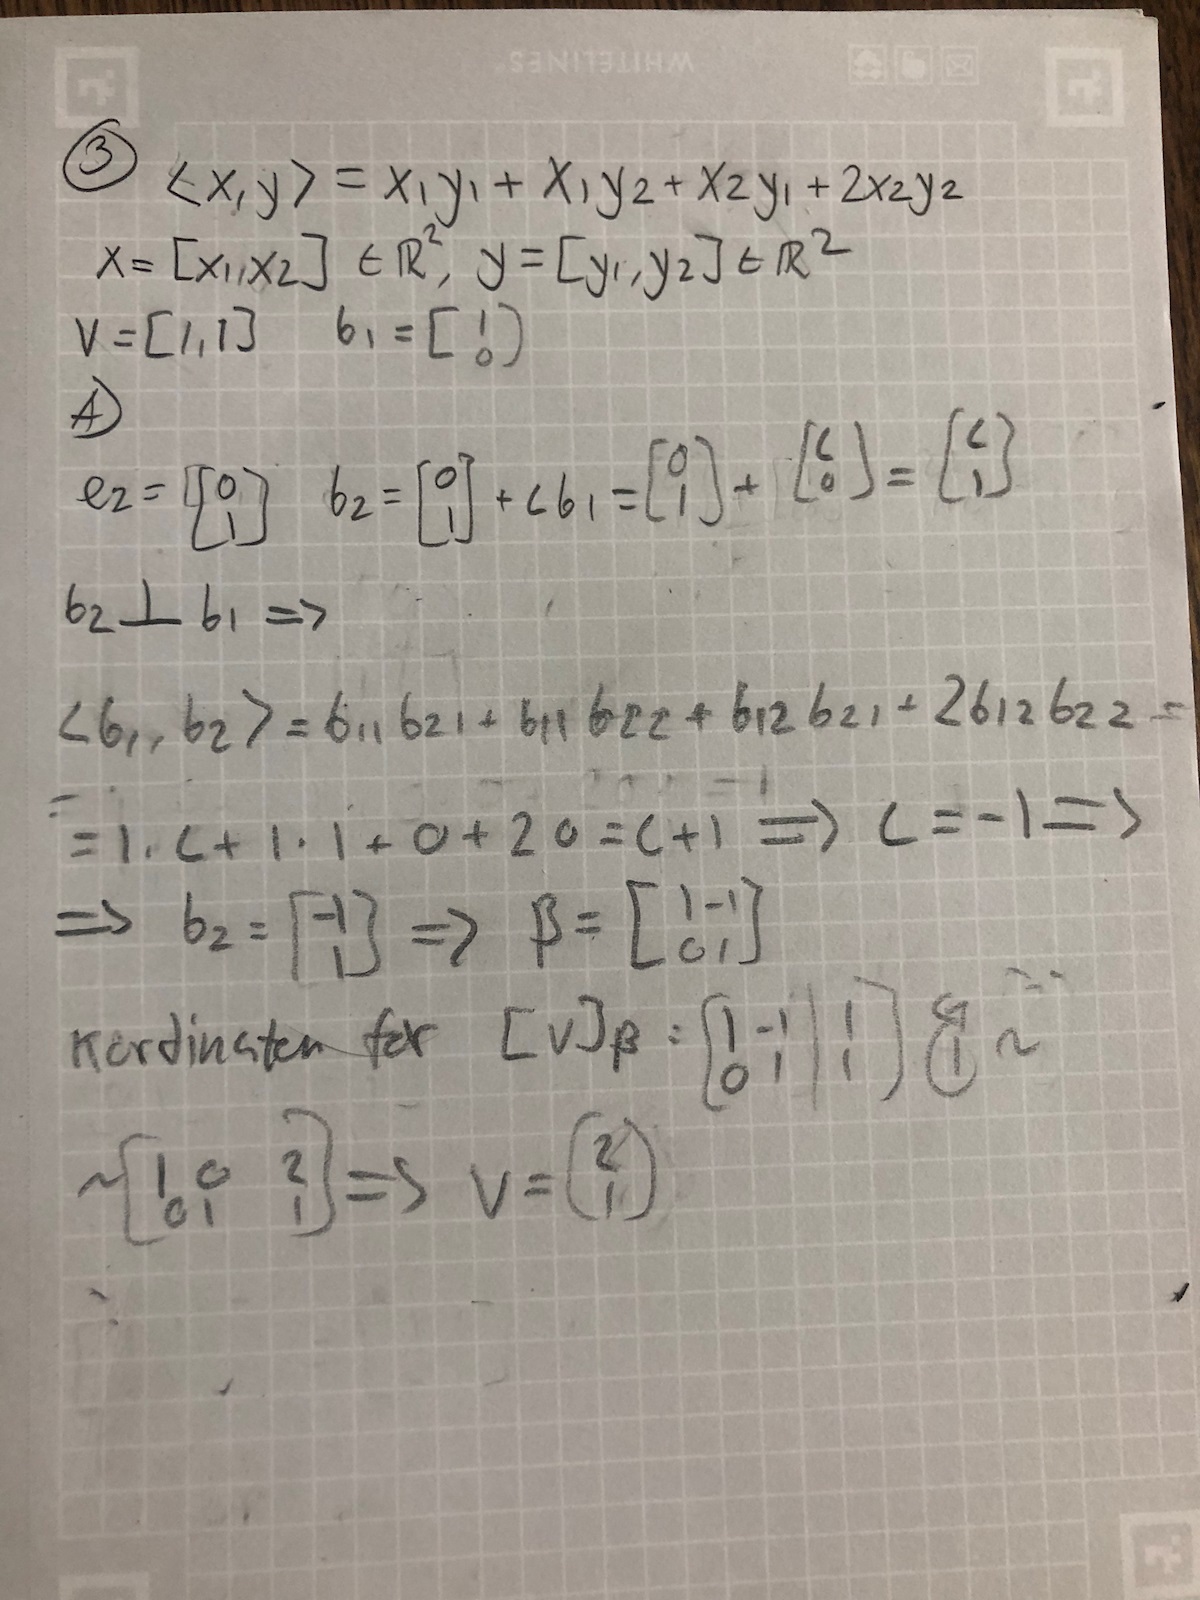 WHITELINES®
③ <x,y> = x₁y₁ + x₁y₂ + x₂y₁ + 2x₂y₂
x = [x₁,x₂] ∈ ℝ², y = [y₁,y₂] ∈ ℝ²
v = [1,1] b₁ = [1 0]
A)
e₂ = [0 1] b₂ = [0 1] + c b₁ = [0 1] + [c 0] = [c 1]
b₂ ⊥ b₁ =>
<b₁, b₂> = b₁₁b₂₁ + b₁₁b₂₂ + b₁₂b₂₁ + 2b₁₂b₂₂ =
= 1·c + 1·1 + 0 + 2 0 = c+1 => c = -1 =>
=> b₂ = [-1 1] => β = [1 -1 0 1]
Kordinaten for [v]β = [1 -1 | 1 0 1 | 1] ~
~ [1 0 2 0 1 1] => v = (2 1)